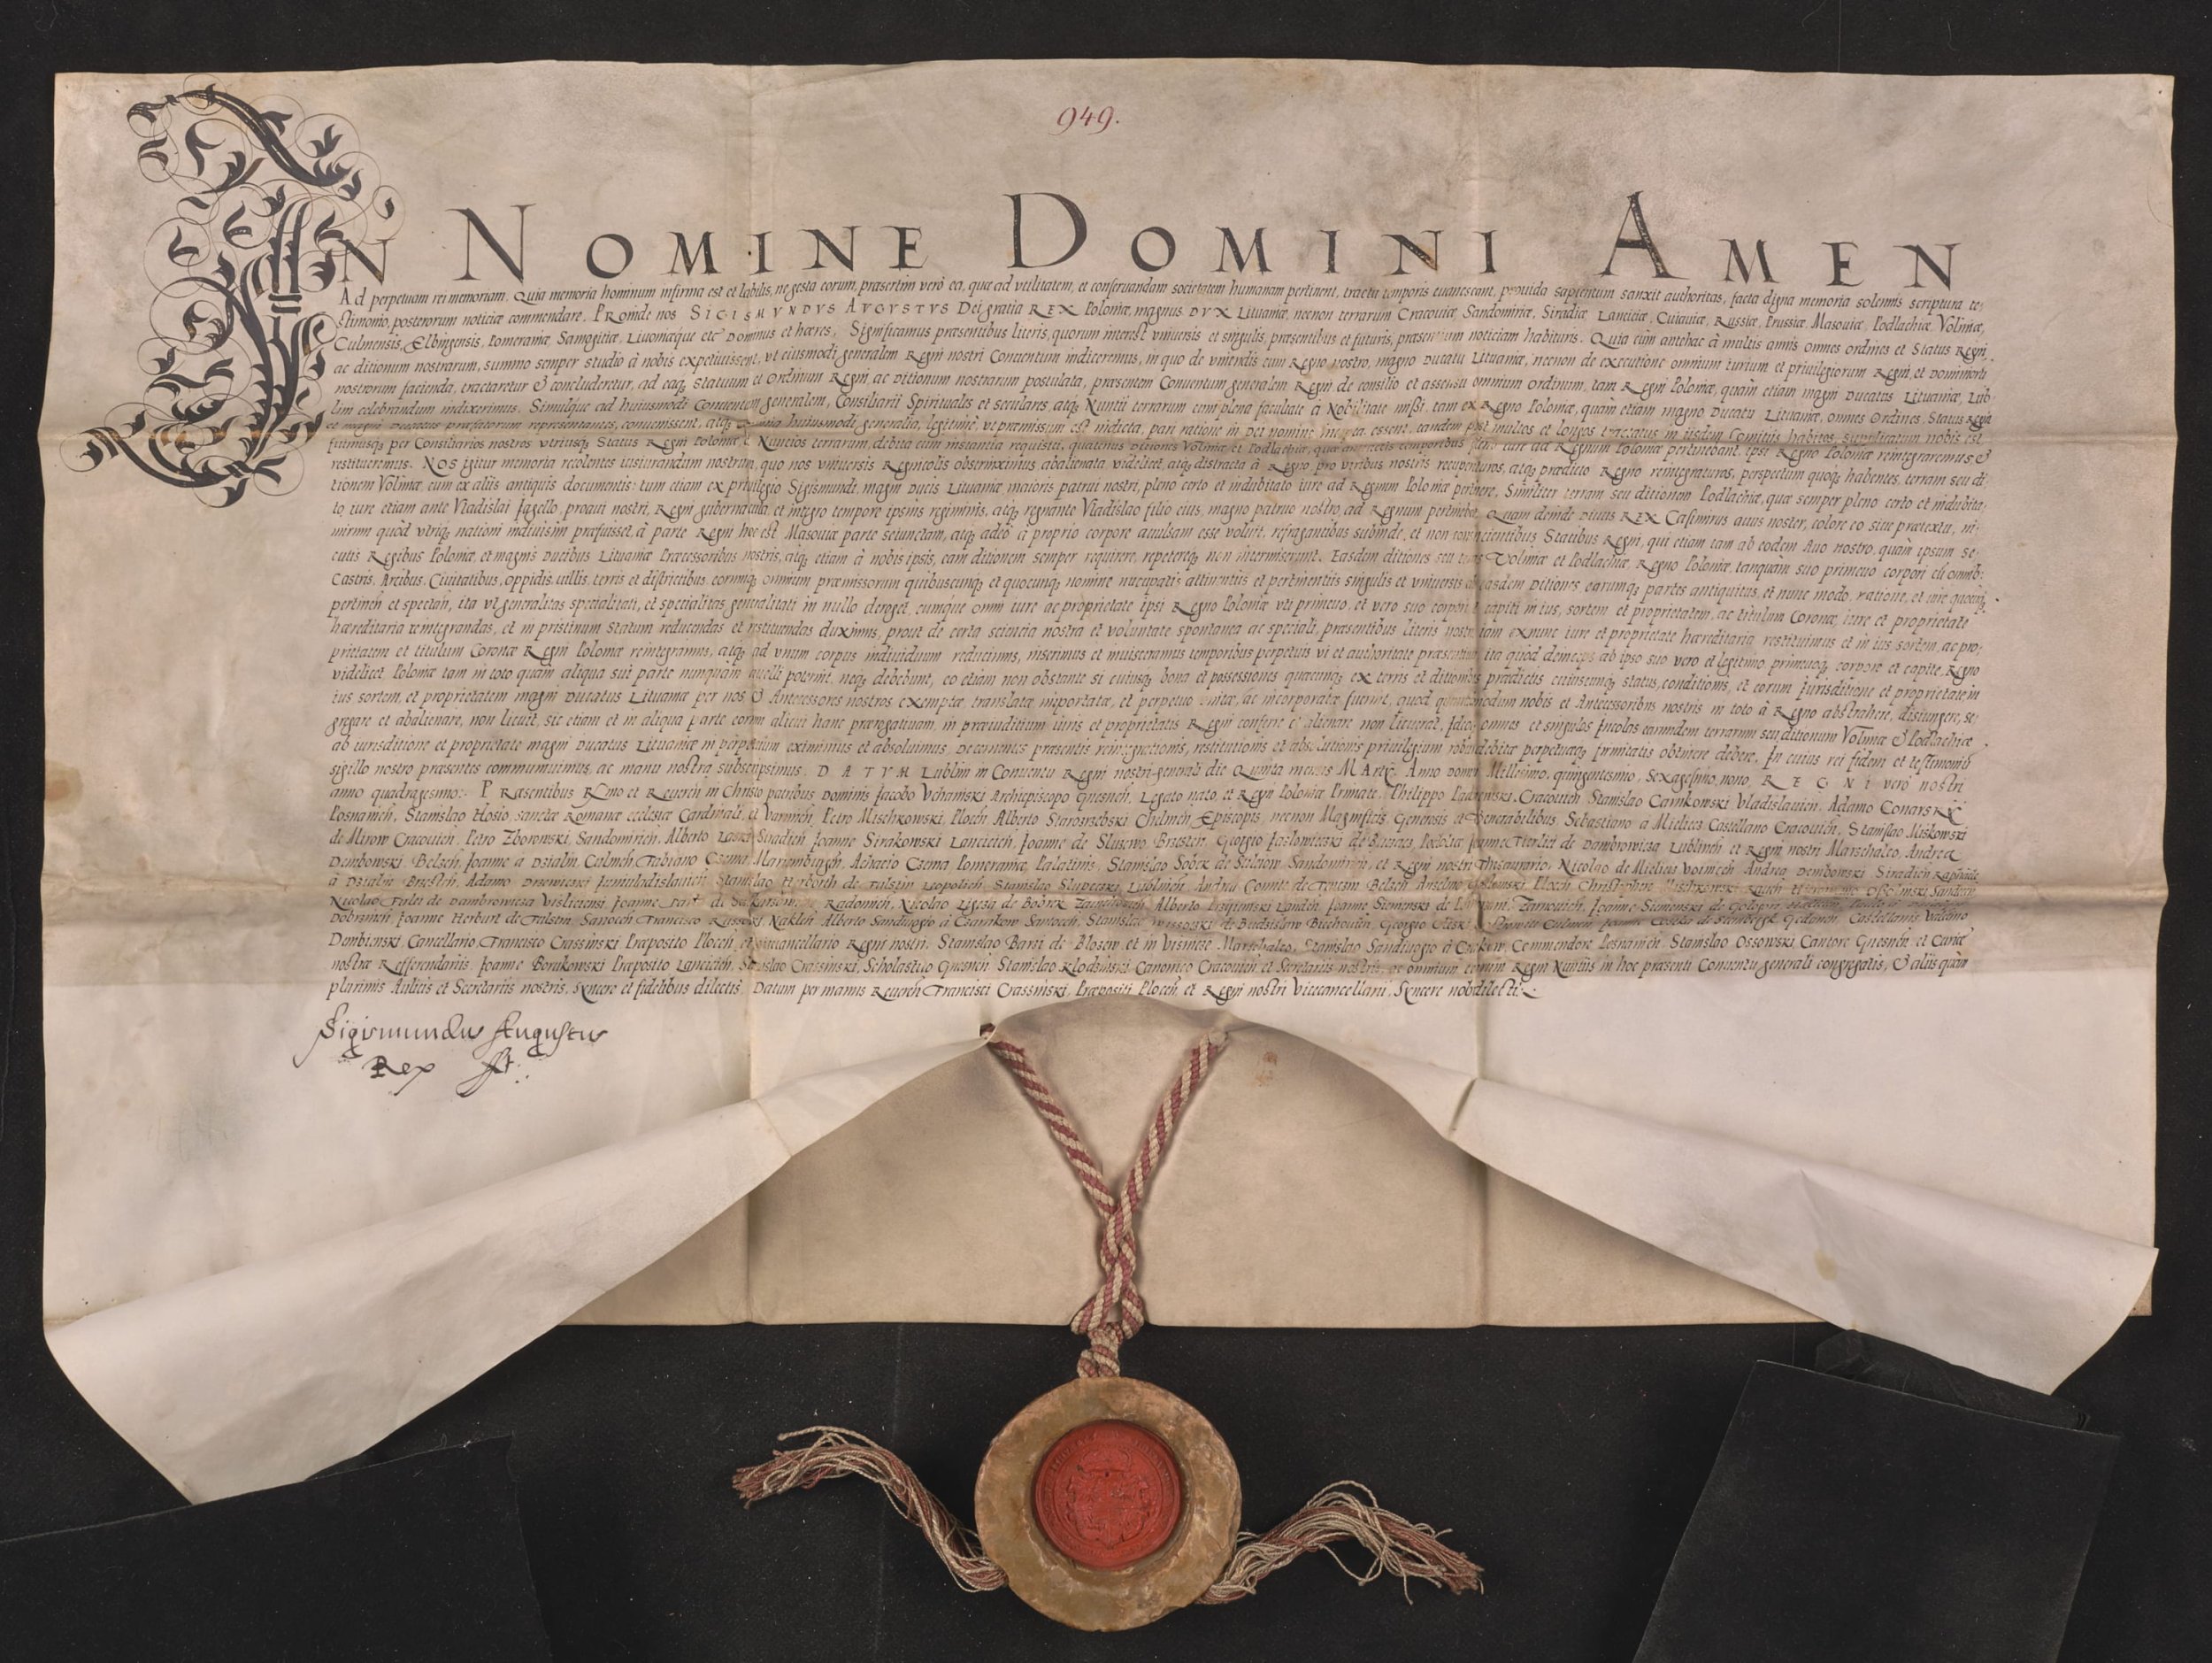 949.
IN NOMINE DOMINI AMEN
Ad perpetuam rei memoriam. Quia memoria hominum infirma est et labilis, ne gesta eorum, præsertim verò ea, quæ ad vtilitatem, et conseruandam societatem humanam pertinent, tractu temporis euanescant, prouida sapientum sanxit authoritas, facta digna memoria solennis scripturæ te,
stimonio, posterorum noticiæ commendare. PRoinde nos SIGISMVNDVS AVGVSTVS Dei gratia REX Poloniæ, magnus DVX Lituaniæ, necnon terrarum Cracouiæ, Sandomiriæ, Siradiæ Lanciciæ, Cuiauiæ, Russiæ, Prussiæ, Masouiæ, Podlachiæ, Voliniæ,
Culmensis, Elbingensis, Pomeraniæ, Samogitiæ, Liuoniæque etc Dominus et hæres. Significamus præsentibus literis, quorum interest vniuersis et singulis, præsentibus et futuris, præsentium noticiam habituris. Quia cùm antehac à multis annis omnes ordines et Status Regni,
ac ditionum nostrarum, summo semper studio à nobis expetiuissent, vt eiusmodi generalem Regni nostri Conuentum indiceremus, in quo de vniendis cum Regno nostro, magno Ducatu Lituaniæ, necnon de executione omnium iurium et priuilegiorum Regni, et Dominiorũ
nostrorum facienda, tractaretur & concluderetur, ad eaq; Statuum et Ordinum Regni, ac Ditionum nostrarum postulata, præsentem Conuentum generalem Regni de consilio et assensu omnium Ordinum, tam Regni Poloniæ, quàm etiam magni Ducatus Lituaniæ, Lub,
lini celebrandum indixerimus. Simulque ad huiusmodi Conuentum generalem, Consiliarii Spirituales et seculares, atq; Nuntii terrarum cum plena facultate à Nobilitate missi, tam ex Regno Poloniæ, quàm etiam magno Ducatu Lituaniæ, omnes Ordines, Status Regni
et magni Ducatus præfatorum representantes, conuenissent, atq; huiusmodi generalia, legitimè vt præmissum est indicta, pari ratione in Dei nomine essent. tandem post multos et longos tractatus in iisdem Comitiis habitos, supplicatum nobis est
fuimusq; per Consiliarios nostros vtriusq; Status Regni Poloniæ & Nuncios terrarum, debita cum instantia requisiti, quatinus Ditiones Voliniæ et Podlachiæ, quæ temporibus iure ad Regnum Poloniæ pertinebant, ipsi Regno Poloniæ reintegraremus &
restitueremus. NOS igitur memoria recolentes iusiurandum nostrum, quo nos vniuersis Regnicolis obstrinximus, abalienata videlicet, atq; distracta à Regno pro viribus nostris recuperaturos, atq; prædicto Regno reintegraturos, perspectum quoq; habentes, terram seu di,
tionem Voliniæ, cum ex aliis antiquis documentis, tum etiam ex priuilegio Sigismundi, magni Ducis Lituaniæ, maioris patrui nostri, pleno certo et indubitato iure ad Regnum Poloniæ pertinere. Similiter terram seu ditionem Podlachiæ, quæ semper pleno certo et indubita,
to, iure etiam ante Vladislai Jagello, proaui nostri, Regni gubernacula, et integro tempore ipsius regiminis, atq; regnante Vladislao filio eius, magno patruo nostro, ad Regnum pertinebat, Quam deinde Diuus REX Casimirus auus noster, colore eo siue prætextu, ni,
mirum quòd vtriq; nationi indiuisim præfuisset, à parte Regni hoc est Masouiæ parte seiunctam, atq; adeò à proprio corpore auulsam esse voluit, refragantibus subinde, et non consentientibus Statibus Regni, qui etiam tam ab eodem Auo nostro, quàm ipsum se,
cutis Regibus Poloniæ et magnis Ducibus Lituaniæ Præcessoribus nostris, atq; etiam à nobis ipsis, eam ditionem semper requirere, repetereq; non intermiserunt. Easdem ditiones seu terras Voliniæ et Podlachiæ, Regno Poloniæ, tanquam suo primeuo corpori cũ omnib:
Castris, Arcibus, Ciuitatibus, oppidis, uillis, terris et districtibus, eorumq; omnium præmissorum quibuscunq; et quocunq; nomine nuncupatis attinentiis et pertinentiis singulis et vniuersis ad easdem Ditiones earumq; partes antiquitus, et nunc modo, ratione, et iure quocunq;
pertineñ et spectañ, ita vt generalitas specialitati, et specialitas generalitati in nullo deroget, cumque omni iure ac proprietate ipsi Regno Poloniæ vti primeuo, et vero suo corpori & capiti in ius, sortem et proprietatem, ac titulum Coronæ, iure et proprietate
hæreditaria reintegrandas, et in pristinum Statum reducendas et restituendas duximus, prout de certa sciencia nostra et voluntate spontanea ac speciali, præsentibus literis nostris iam ex nunc iure et proprietate hæreditaria restituimus et in ius, sortem, ac pro,
prietatem et titulum Coronæ Regni Poloniæ reintegramus, atq; ad vnum corpus indiuiduum reducimus, inserimus et inuisceramus temporibus perpetuis vi et authoritate præsentium, ita quòd deinceps ab ipso suo vero et legitimo primeuoq; corpore et capite, Regno
videlicet Poloniæ tam in toto quàm aliqua sui parte nunquam auelli poterint, neq; debebunt, eo etiam non obstante si cuiusq; bona et possessiones quæcunq; ex terris et ditionibus prædictis cuiuscunq; status, conditionis, et eorum Jurisditione et proprietate, in
ius sortem, et proprietatem magni Ducatus Lituaniæ per nos & Antecessores nostros exemptæ translatæ importatæ, et perpetuo vnitæ, ac incorporatæ fuerint, quod quemadmodum nobis et Antecessoribus nostris in toto à Regno abstrahere, distungere, se,
gregare et abalienare, non licuit, sic etiam et in aliqua parte eorum alicui hanc prærogatiuam, in præiuditium iuris et proprietatis Regni conferre et alienare non licuerat, Ideoq; omnes et singulos Incolas earundem terrarum seu ditionum Voliniæ & Podlachiæ
ab iurisditione et proprietate magni Ducatus Lituaniæ in perpetuum eximimus et absoluimus. Decernentes præsentis reintegrationis, restitutionis et absolutionis priuilegium robur debitæ perpetuæq; firmitatis obtinere debere. In cuius rei fidem et testimoniũ
sigillo nostro præsentes communiuimus, ac manu nostra subscripsimus. DATVM Lublini in Conuentu Regni nostri generali die Quinta mensis MArtij. Anno domini Millesimo, quingentesimo, Sexagesimo, nono, REGNI verò nostri
anno quadragesimo:. PRæsentibus Rſmo et Reuereñ in Christo patribus Dominis Jacobo Vchański Archiepiscopo Gnesneñ, Legato nato, et Regni Poloniæ Primate. Philippo Padniewski Cracouień Stanislao Carnkowski Vladislauień. Adamo Conarski
Posnanień, Stanislao Hosio, sanctæ Romanæ ecclesiæ Cardinali, et Varmień, Petro Mischkowski, Ploceñ, Alberto Starosrzebski Chelmeñ Episcopis, necnon Magnificis, Generosis et Venerabilibus Sebastiano à Mielecz Castellano Cracouień, Stanislao Miskowski
de Mirow Cracouień, Petro Zborowski, Sandomirień, Alberto Laski Siradień Joanne Sirakowski Lancicień, Joanne de Sluzewo, Brzesteñ, Georgio Jazlowieczki de Buczacz, Podoliæ Joanne Fierlei de Dambrowicza Lublineñ et Regni nostri Marschalco, Andrea
Dembowski Belzeñ, Joanne à Dzialin, Culmeñ, Fabiano Czema Marienburgeñ, Achatio Czema Pomeraniæ, Palatinis, Stanislao Sobek de Sulciow Sandomirień, et Regni nostri Thesaurario, Nicolao de Mielecz Voiniceñ Andrea, Dembowski Siradień Raphaele
à Dzialin Bresteñ, Adamo Drzewieski Juniuladislauień Stanislao Herborth de Fulstin Leopolień, Stanislao Slupeczki Lublineñ, Andrea Comite de Tencin Belzeñ Anselmo Ploceñ Christophoro
Nicolao Firlei de Dambrowicza Visliciensi, Joanne Radomeñ, Nicolao Ligeza de Bobrek Alberto Landeñ Joanne Siemenski Zarnouień, Joanne Siemenski de
Dobrzineñ Joanne Herburt de Fulstin, Sanoceñ Francisco Russoczki, Nakleñ Alberto Sandiuogio à Czarnkow Santoceñ, Stanislao Wissocki de Budzislaw Biechouień, Georgio Culmeñ Joanne Gedaneñ, Castellanis, Valentino
Dembienski Cancellario, Francisco Crassiński Præposito Ploceñ, et vicecancellario Regni nostri. Stanislao Barzi de Blozew, et in Visnicze Marschalco, Stanislao Sandiuogio à Czarnkow, Commendore Posnanień, Stanislao Ossowski Cantore Gnesneñ, et Curiæ
nostræ Refferendariis, Joanne Borukowski Præposito Lancicień, Stanislao Crassinski, Scholastico Gnesneñ Stanislao Klodzinski Canonico Cracouień et Secretariis nostris, ac omnium terrarum Regni Nuntiis in hoc præsenti Conuentu generali congregatis, & aliis quàm
plurimis Aulicis et Secretariis nostris, Syncere et fidelibus dilectis. Datum per manus Reuereñ Francisci Crassinski, Præpositi Ploceñ, et Regni nostri Vicecancellarii, Syncere nob dilecti.
Sigismundus Augustus
Rex